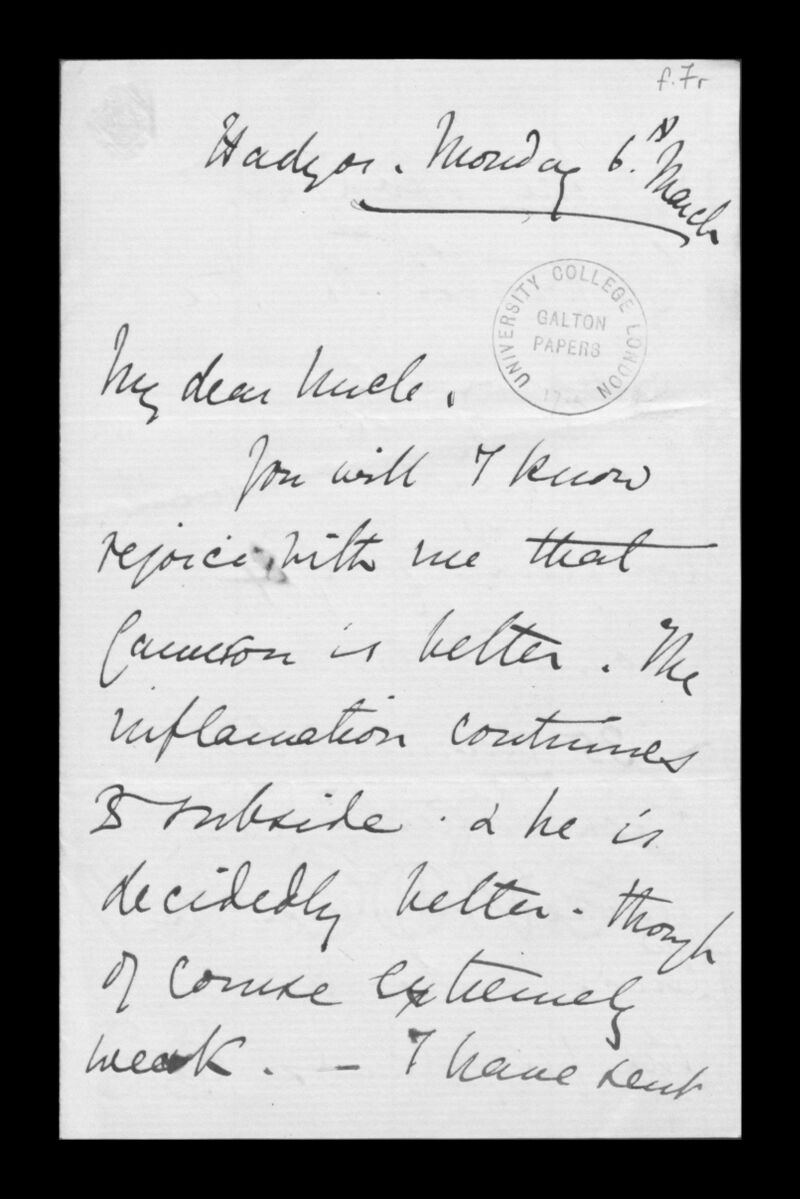 f.7r
Hadzor. Monday 6th March
UNIVERSITY COLLEGE LONDON
GALTON
PAPERS
My dear Uncle.
You will I know
rejoice with me that
Cameron is better. The
inflamation continues
to subside. & he is
decidedly better - though
of course extremely
weak. – I have sent